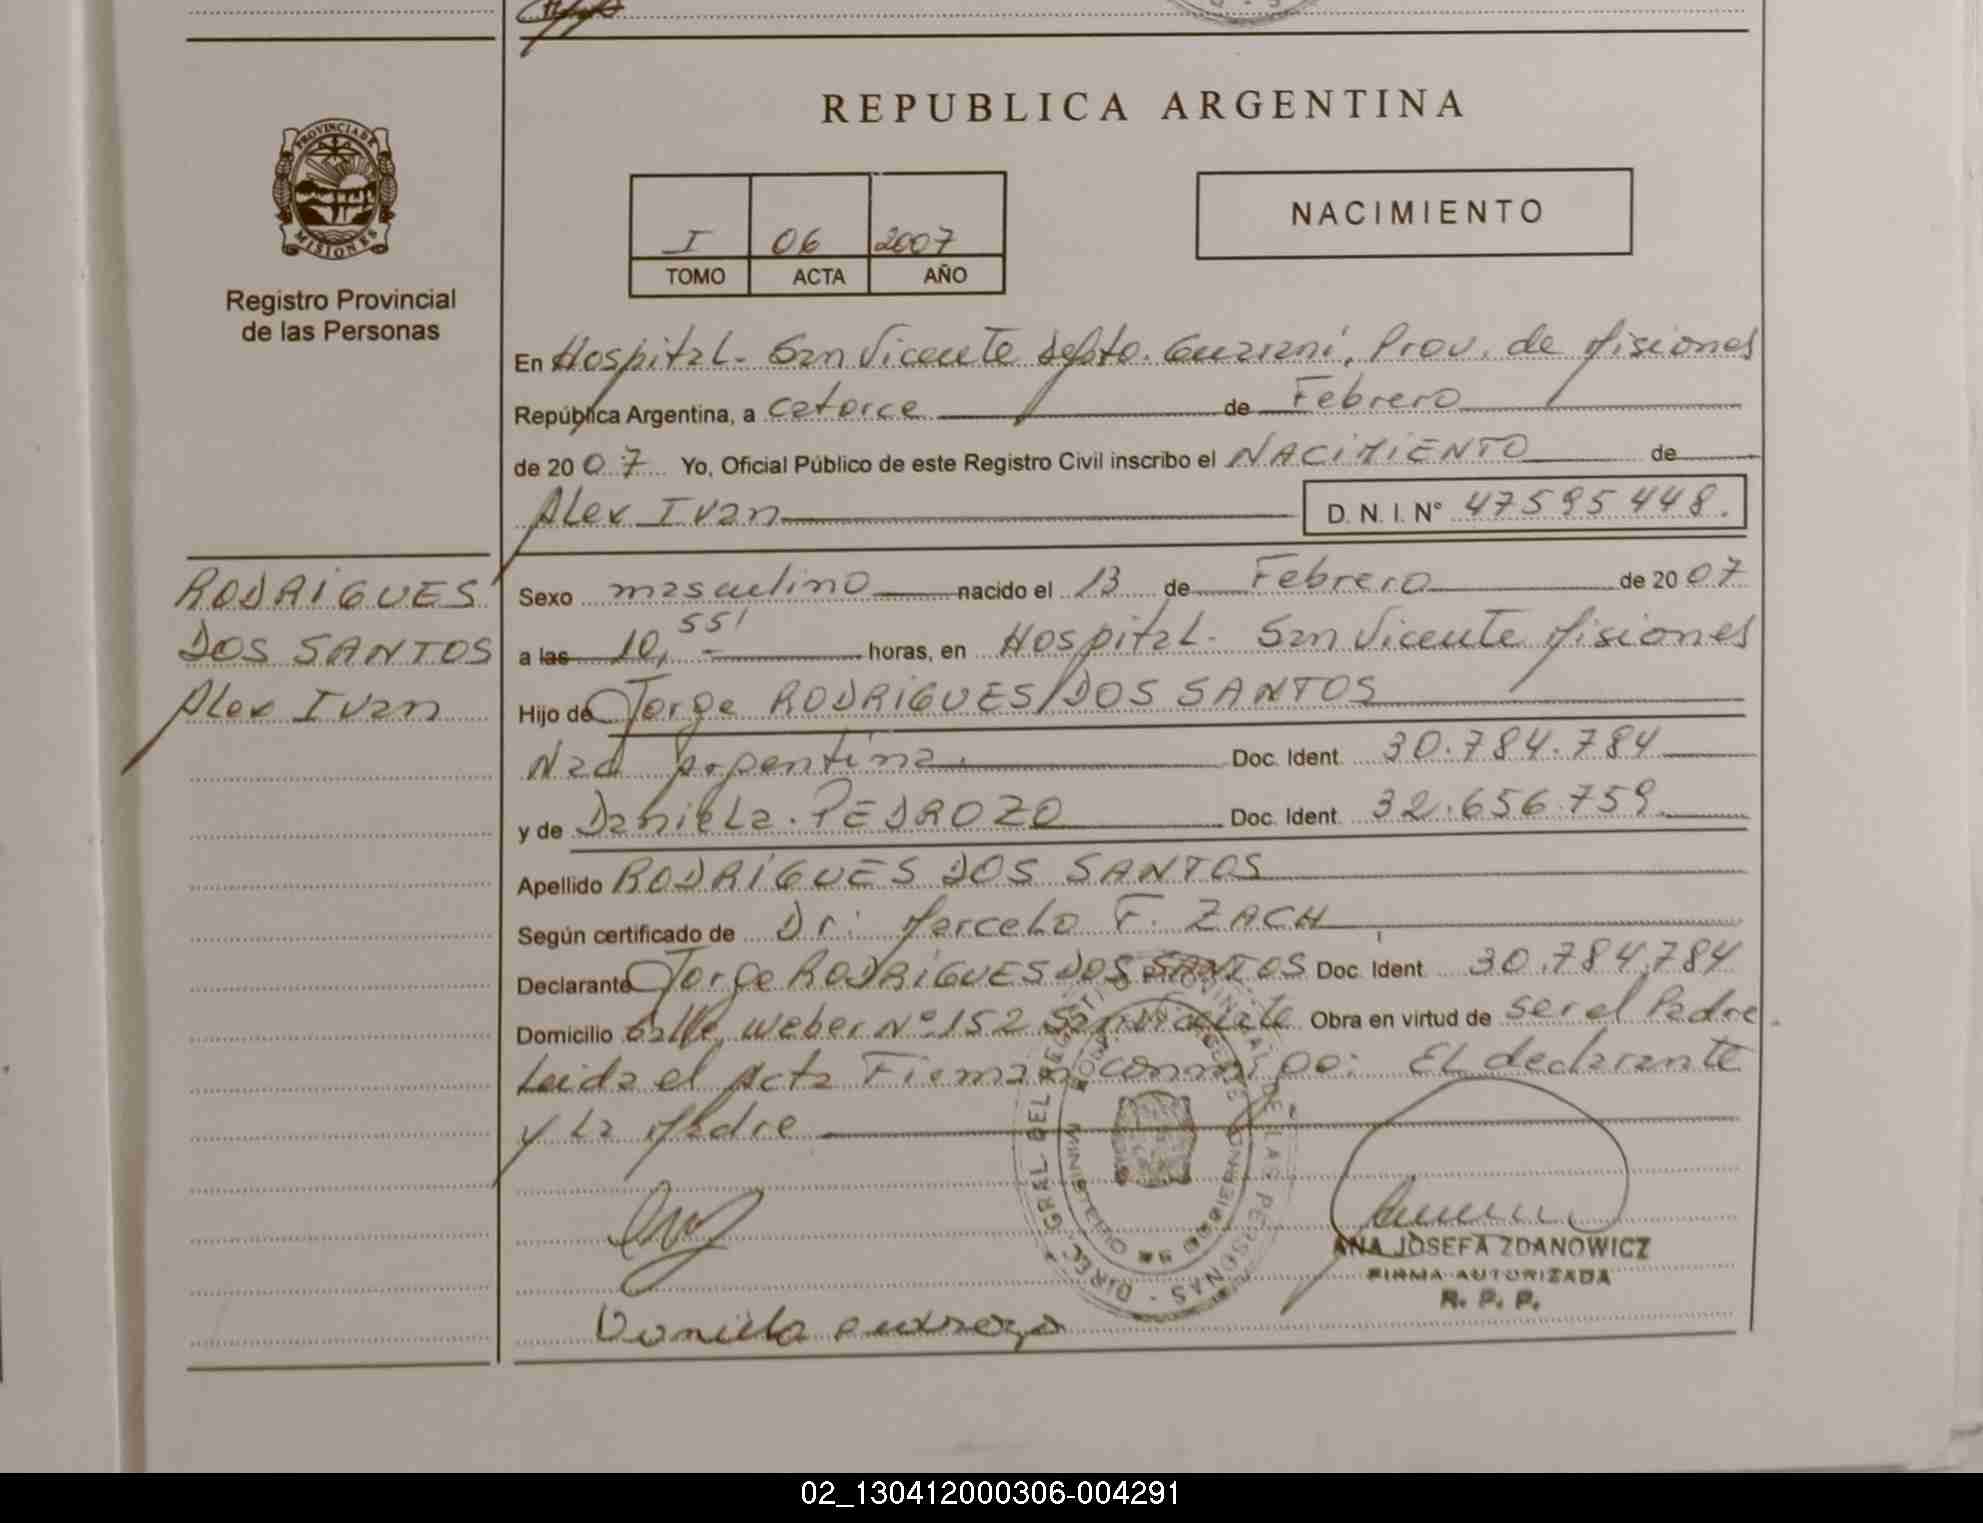 REPUBLICA ARGENTINA
PROVINCIA DE
MISIONES
Registro Provincial
de las Personas
I 06 2007
TOMO ACTA AÑO
NACIMIENTO
En Hospital. San Vicente depto. Guaraní, Prov. de Misiones
República Argentina, a catorce de Febrero
de 2007 Yo, Oficial Público de este Registro Civil inscribo el NACIMIENTO de
Alex Ivan D. N. I. N° 47595448.
RODRIGUES
DOS SANTOS
Alex Ivan
Sexo masculino nacido el 13 de Febrero de 2007
a las 10,55' horas, en Hospital. San Vicente Misiones
Hijo de Jorge RODRIGUES DOS SANTOS
Nac Argentina. Doc. Ident. 30.784.784
y de Daniela. PEDROZO Doc. Ident. 32.656.759
Apellido RODRIGUES DOS SANTOS
Según certificado de Dr: Marcelo F. ZACH
Declarante Jorge RODRIGUES DOS SANTOS Doc. Ident. 30.784.784
Domicilio Calle Weber Nº 152 San Vicente Obra en virtud de ser el Padre.
Leida el Acta Firman conmigo: El declarante
y La Madre
DIREC. GRAL. DEL REGISTRO PROVINCIAL DE LAS PERSONAS
MINISTERIO DE GOBIERNO
ANA JOSEFA ZDANOWICZ
FIRMA AUTORIZADA
R. P. P.
02_130412000306-004291